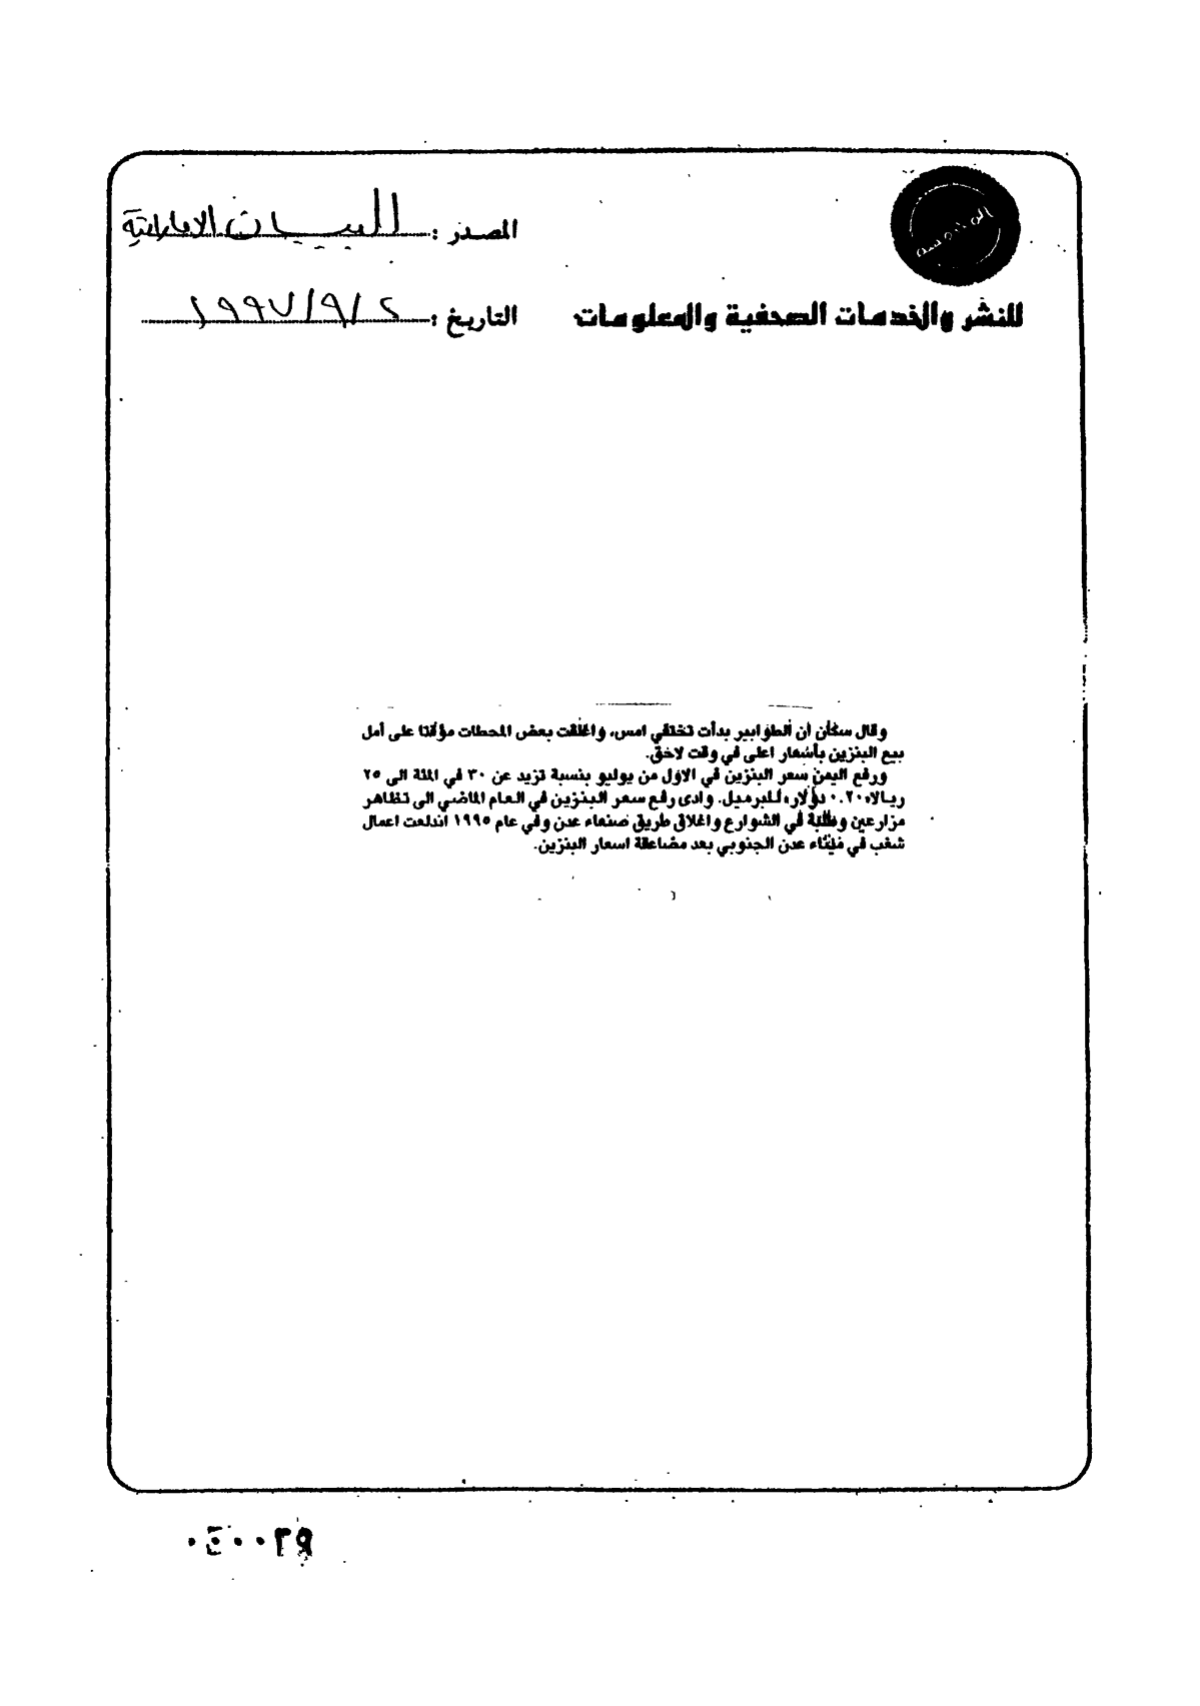 المصدر : البيان الاماراتية
للنشر والخدمات الصحفية والمعلومات
التاريخ : ١٩٩٧/٩/٢
وقال سكان ان الطوابير بدأت تختفي امس، واغلقت بعض المحطات مؤقتا على أمل
بيع البنزين بأسعار اعلى في وقت لاحق.
ورفع اليمن سعر البنزين في الاول من يوليو بنسبة تزيد عن ٣٠ في المئة الى ٢٥
ريالا ٠.٢٠ دولار للبرميل. وادى رفع سعر البنزين في العام الماضي الى تظاهر
مزارعين وطلبة في الشوارع واغلاق طريق صنعاء عدن وفي عام ١٩٩٥ اندلعت اعمال
شغب في ميناء عدن الجنوبي بعد مضاعفة اسعار البنزين.